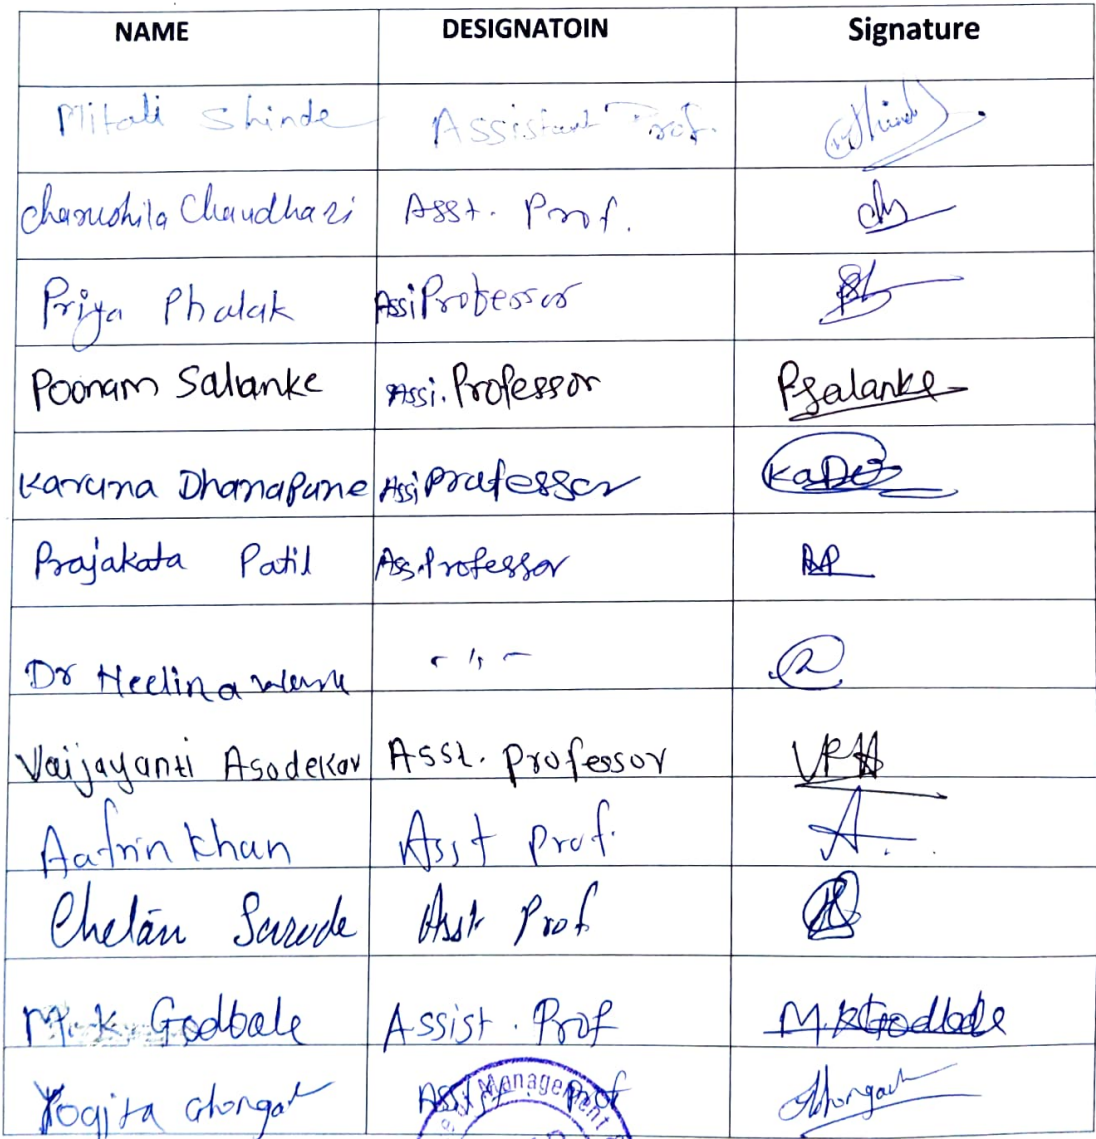 NAME DESIGNATOIN Signature
Mitali Shinde Assistant Prof.
Charushila Chaudhari Asst. Prof.
Priya Phalak Assi Professor
Poonam Salanke Assi. Professor PSalanke
Karuna Dhanapune Assi Professor
Prajakata Patil Ass. Professor
Dr Neelina - 〃 -
Vaijayanti Asodekar Asst. Professor VPA
Aafrin Khan Asst Prof. A
Chetan Sarode Asst Prof
M. K. Godbale Assist. Prof M K Godbale
Yogita Ghongat Assist. Prof
Management